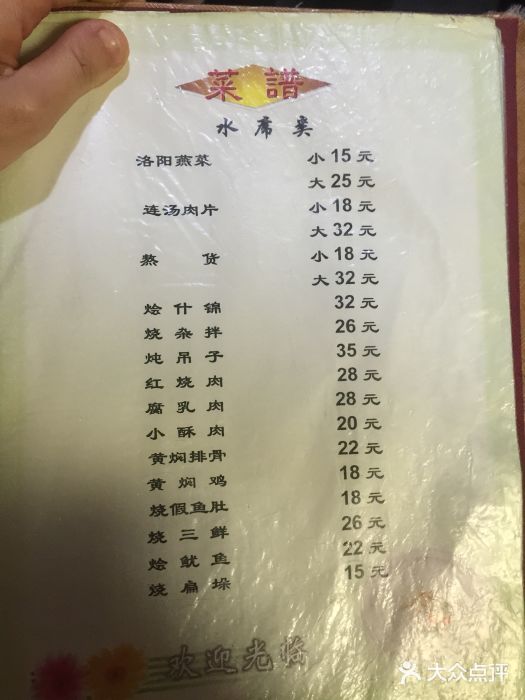 菜譜
水席类
洛阳燕菜 小 15 元
大 25 元
连汤肉片 小 18 元
大 32 元
熬货 小 18 元
大 32 元
烩什锦 32 元
烧杂拌 26 元
炖吊子 35 元
红烧肉 28 元
腐乳肉 28 元
小酥肉 20 元
黄焖排骨 22 元
黄焖鸡 18 元
烧假鱼肚 18 元
烧三鲜 26 元
烩鱿鱼 22 元
烧扁垛 15 元
欢迎光临
大众点评